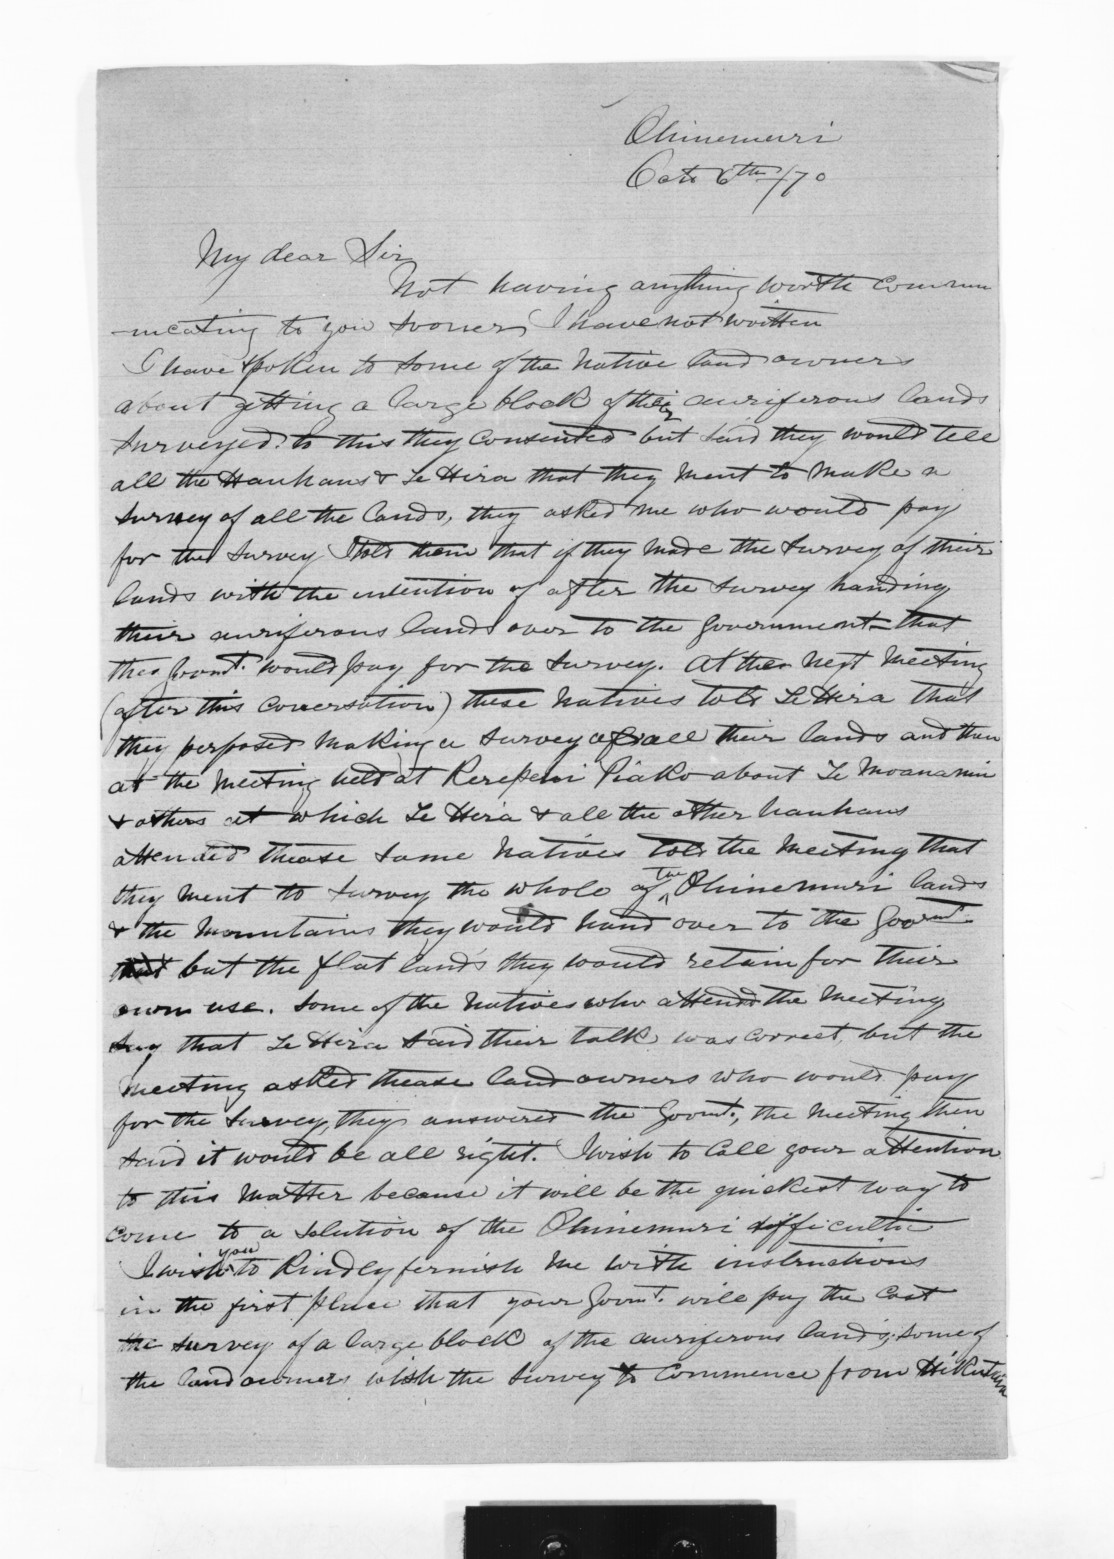 Ohinemuri
Oct 6th /70
My dear Sir
Not having anything worth commu
-nicating to you sooner, I have not written
I have spoken to some of the Native land owners
about getting a large block of their auriferous lands
surveyed. to this they consented but said they would tell
all the Hauhaus & Te Hira that they ment to make a
survey of all the lands, they asked me who would pay
for the survey I told them that if they made the survey of their
lands with the intention of after the survey handing
their auriferous lands over to the Government that
the Govmt. would pay for the survey. At the next meeting
(after this conversation) these natives told Te Hira that
they perposed making a survey of all their lands and then
at the meeting held at Kerepehi Piako about Te Moananui
& others at which Te Hira & all the other hauhaus
attended thease same natives told the meeting that
they ment to survey the whole of the Ohinemuri lands
& the mountains they would hand over to the Govmt.
but the flat lands they would retain for their
own use. some of the natives who attended the meeting
say that Te Hira said their talk was correct, but the
meeting asked thease land owners who would pay
for the survey, they answered the Govmt., the meeting then
said it would be all right. I wish to call your attention
to this matter because it will be the quickest way to
come to a solution of the Ohinemuri difficultie
I wish you to kindly fernish me with instructions
in the first place that your Govmt. will pay the cost
the survey of a large block of the auriferous lands, some of
the land owners wish the survey to commence from Hikutaia